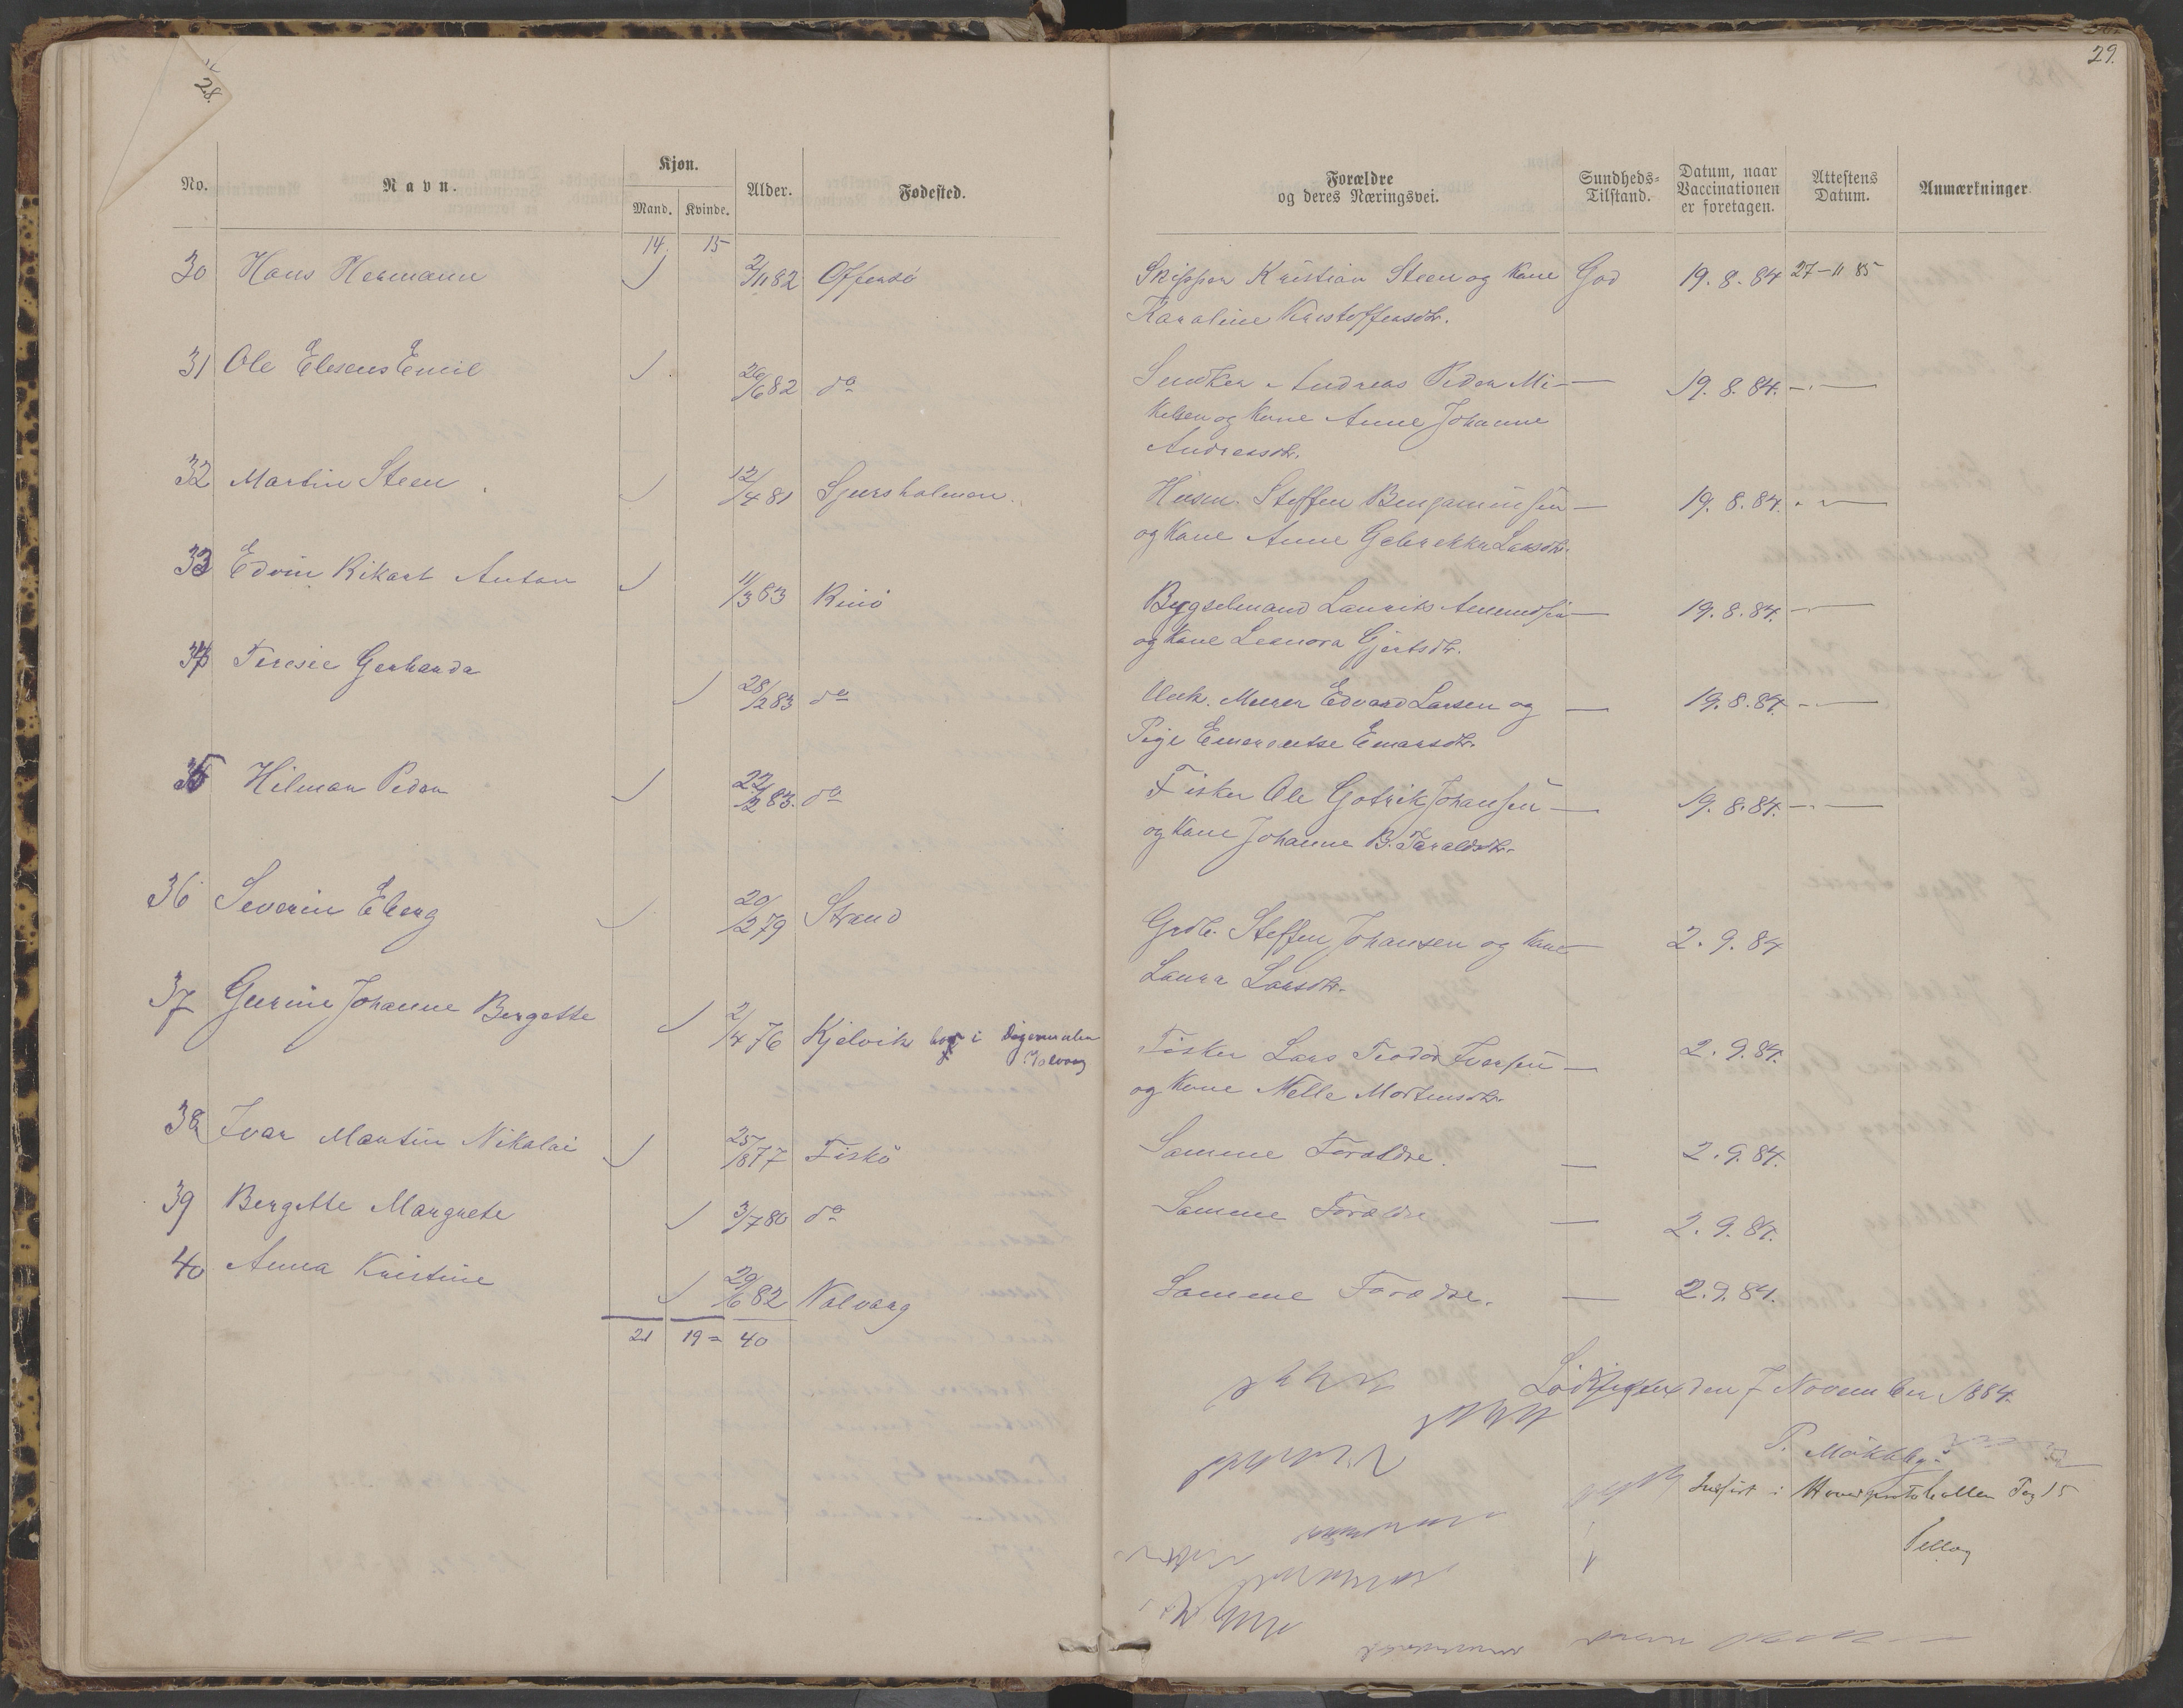 28.
29.
No. Navn. Kjøn. Mand. Kvinde. Alder. Fødested.
Forældre og deres Næringsvei. Sundheds-Tilstand. Datum, naar Vaccinationen er foretagen. Attestens Datum. Anmærkninger
14 15
30 Hans Hermann ✓ 2/11 82 Offersö Skipper Kristian Steen og Kone God 19.8.84 27-11 85
Karoline Kristoffersdtr.
31 Ole Eleseus Emil ✓ 26/6 82 do Snedker Andreas Peder Mi- — 19.8.84. —
kelsen og Kone Anne Johanne
Andreasdtr.
32 Martin Steen ✓ 12/4 81 Sjursholmen. Husm. Steffen Benjaminsen — 19.8.84. —
og Kone Anne Gebrekke Larsdtr.
33 Edvin Rikart Anton ✓ 11/3 83 Rinö Bygselmand Lauriks Amundsen — 19.8.84. —
og Kone Leonora Gjertsdtr.
34 Teresie Gerharda ✓ 28/2 83 do Unk. Murer Edvard Larsen og — 19.8.84. —
Pige Emerentse Einarsdtr.
35 Hilmar Peder ✓ 22/2 83. do Fisker Ole Gotrik Johansen — 19.8.84. —
og Kone Johanne B. Taraldsdtr.
36 Severin Eberg ✓ 20/2 79 Strand Grdb. Steffen Johansen og Kone — 2.9.84
Laura Larsdtr.
37 Gurine Johanne Bergette ✓ 2/4 76 Kjelvik bor i Digermulen Fisker Lars Teodor Iversen — 2.9.84.
og Kone Nelle Mortensdtr.
38 Ivar Martin Nikolai ✓ 25/8 77 Fiskö Samme Forældre. — 2.9.84.
39 Bergette Margrete ✓ 3/7 80 do Samme Forældre — 2.9.84.
40 Anna Kristine ✓ 29/6 82 Valvaag Samme Forældre. — 2.9.84.
21 19 = 40
Lödingen den 7 November 1884.
P.
Indfört i Hovedprotokollen Pag 15